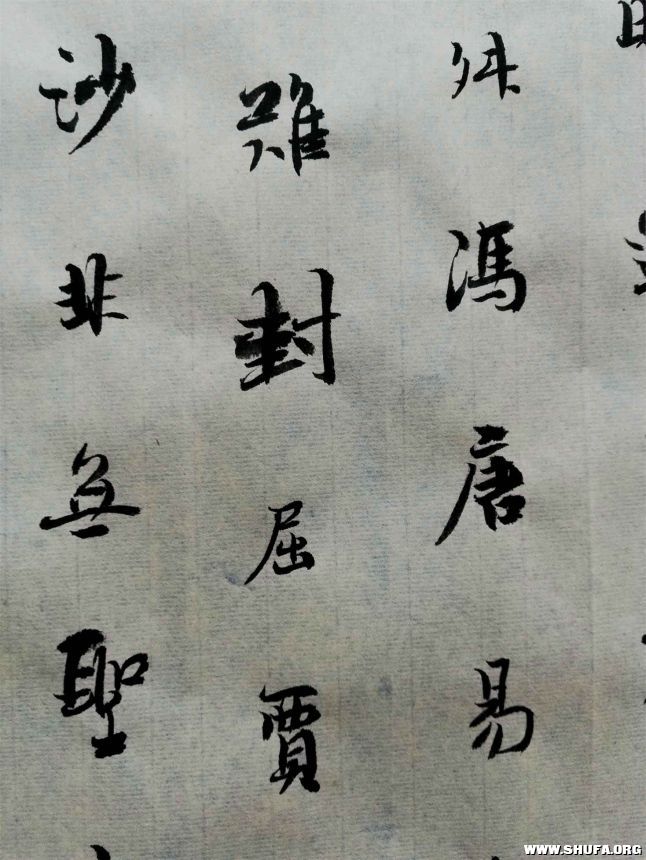 舛馮唐易
難封屈賈
沙非無聖
WWW.SHUFA.ORG